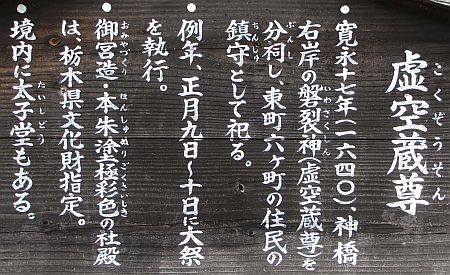 虚空蔵尊
こくぞうそん
●寛永十七年(一六四〇)、神橋
右岸の磐裂神(虚空蔵尊)を
いわさくしん
分祠し、東町六ヶ町の住民の
ぶんし
鎮守として祀る。
ちんじゅ
●例年、正月九日〜十日に大祭
を執行。
●御宮造・本朱塗極彩色の社殿
おみやづくり ほんしゅぬりごくさいしき
は、栃木県文化財指定。
●境内に太子堂もある。
たいしどう